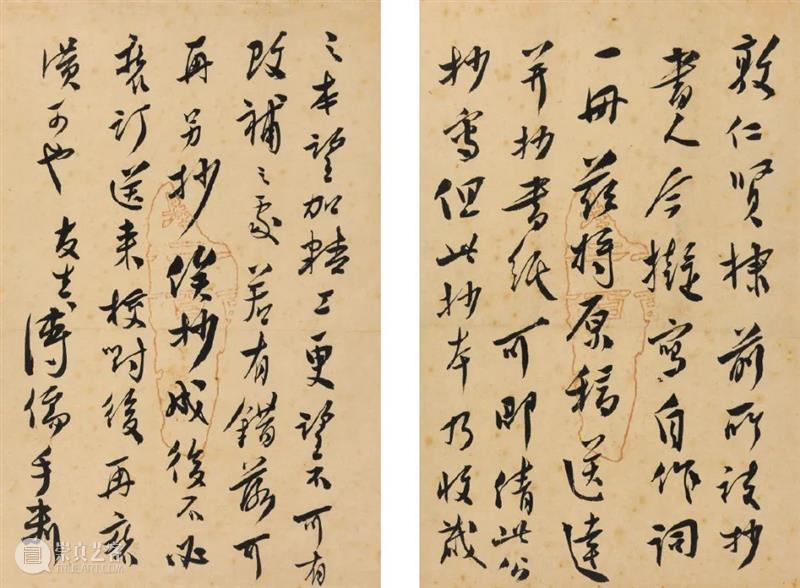 敦仁贤棣前所谈抄
书人今拟写自作词
一册兹将原稿送达
并抄书纸可即倩此公
抄写但此抄本乃收藏
之本望加精工更望不可有
改补之处若有错落可
再另抄俟抄成后不必
装订送来校对后再
潢可也 友生溥儒手
崇真艺客